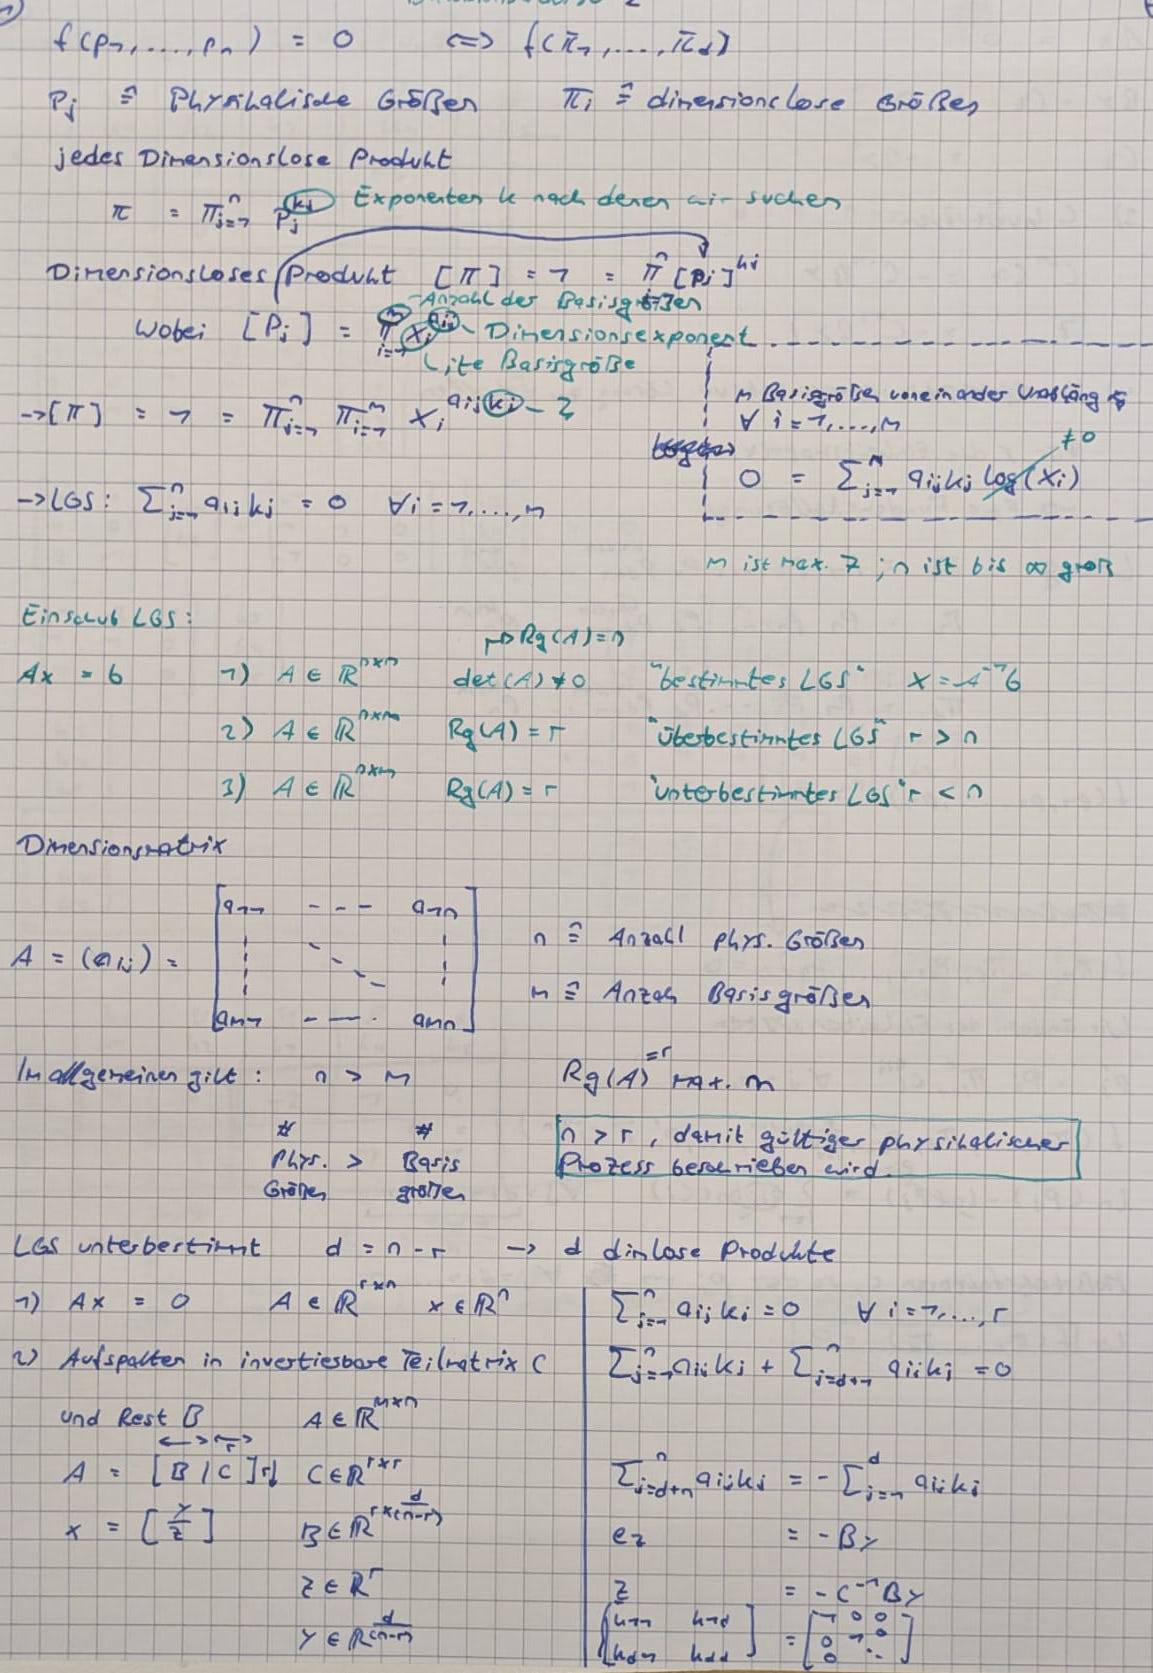 f(p₁,....,pₙ) = 0 ⟺ f(π₁,....,π_d)
P_j ≙ Physikalische Größen π_i ≙ dimensionslose Größen
jedes Dimensionslose Produkt
π = Π_{j=1}^n P_j^{k_j} Exponenten k nach denen wir suchen
Dimensionsloses Produkt [π] = 1 = Π^n_{j=1} [P_j]^{k_j}
Anzahl der Basisgrößen
wobei [P_j] = Π_{i=1}^m X_i^{a_ij} - Dimensionsexponent
ite Basisgröße
→[π] = 1 = Π_{j=1}^n Π_{i=1}^m X_i^{a_ij k_j} - ?
m Basisgrößen voneinander Unabhängig
∀ i = 1,....,m
≠0
0 = Σ_{j=1}^n a_ij k_j log(X_i)
→LGS: Σ_{j=1}^n a_ij k_j = 0 ∀i = 1,....,m
m ist max. 7 ; n ist bis ∞ groß
Einschub LGS:
↦ Rg(A) = n
Ax = b 1) A ∈ ℝ^{n×n} det(A) ≠ 0 "bestimmtes LGS" X = A⁻¹b
2) A ∈ ℝ^{n×m} Rg(A) = r "überbestimmtes LGS" r > n
3) A ∈ ℝ^{n×m} Rg(A) = r "unterbestimmtes LGS" r < n
Dimensionsmatrix
a₁₁ --- a₁ₙ
n ≙ Anzahl phys. Größen
A = (a_ij) =
m ≙ Anzah Basisgrößen
a_m1 --- . a_mn
Im allgemeinen gilt: n > m Rg(A) =r max. m
# #
Phys. > Basis
Größen größen
n > r, damit gültiger physikalischer
Prozess beschrieben wird.
LGS unterbestimmt d = n - r → d dimlose Produkte
1) Ax = 0 A ∈ ℝ^{r×n} x ∈ ℝⁿ
Σ_{j=1}^n a_ij k_j = 0 ∀ i = 1,....,r
2) Aufspalten in invertierbare Teilmatrix C
Σ_{j=1}^n a_ij k_j + Σ_{j=d+1}^n a_ij k_j = 0
und Rest B A ∈ ℝ^{m×n}
A = [B | C ] r↓ C ∈ ℝ^{r×r}
Σ_{j=d+n}^n a_ij k_j = - Σ_{j=1}^d a_ij k_j
x = [y/z] B ∈ ℝ^{r×(n-r)} d
cz = -By
z ∈ ℝ^r
z = -C⁻¹By
y ∈ ℝ^{(n-r)} d
[k₁₁ k₁d
k_d1 k_dd] = [1 0 0
0 1 0
0 ·.]